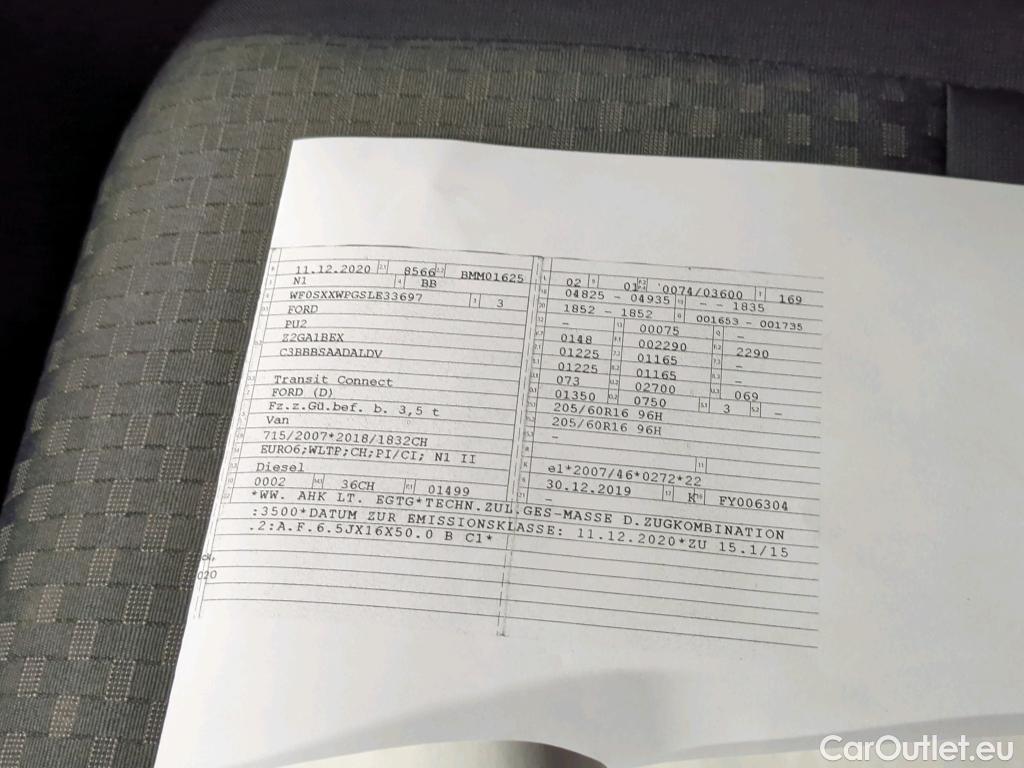 11.12.2020 8566 BMM01625
N1 BB
WF0SXXWPGSLE33697 3
FORD
PU2
Z2GA1BEX
C3BBBSAADALDV
Transit Connect
FORD (D)
Fz.z.Gü.bef. b. 3,5 t
Van
715/2007*2018/1832CH
EURO6;WLTP;CH;PI/CI; N1 II
Diesel
0002 36CH 01499
02 01 0074/03600 169
04825 - 04935 - - 1835
1852 - 1852 001653 - 001735
- 00075 -
0148 002290 2290
01225 01165 -
01225 01165 -
073 02700 069
01350 0750 3 -
205/60R16 96H
205/60R16 96H
-
e1*2007/46*0272*22
30.12.2019 K FY006304
-
*WW. AHK LT. EGTG*TECHN.ZUL.GES-MASSE D.ZUGKOMBINATION
:3500*DATUM ZUR EMISSIONSKLASSE: 11.12.2020*ZU 15.1/15
.2:A.F.6.5JX16X50.0 B C1*
020
CarOutlet.eu